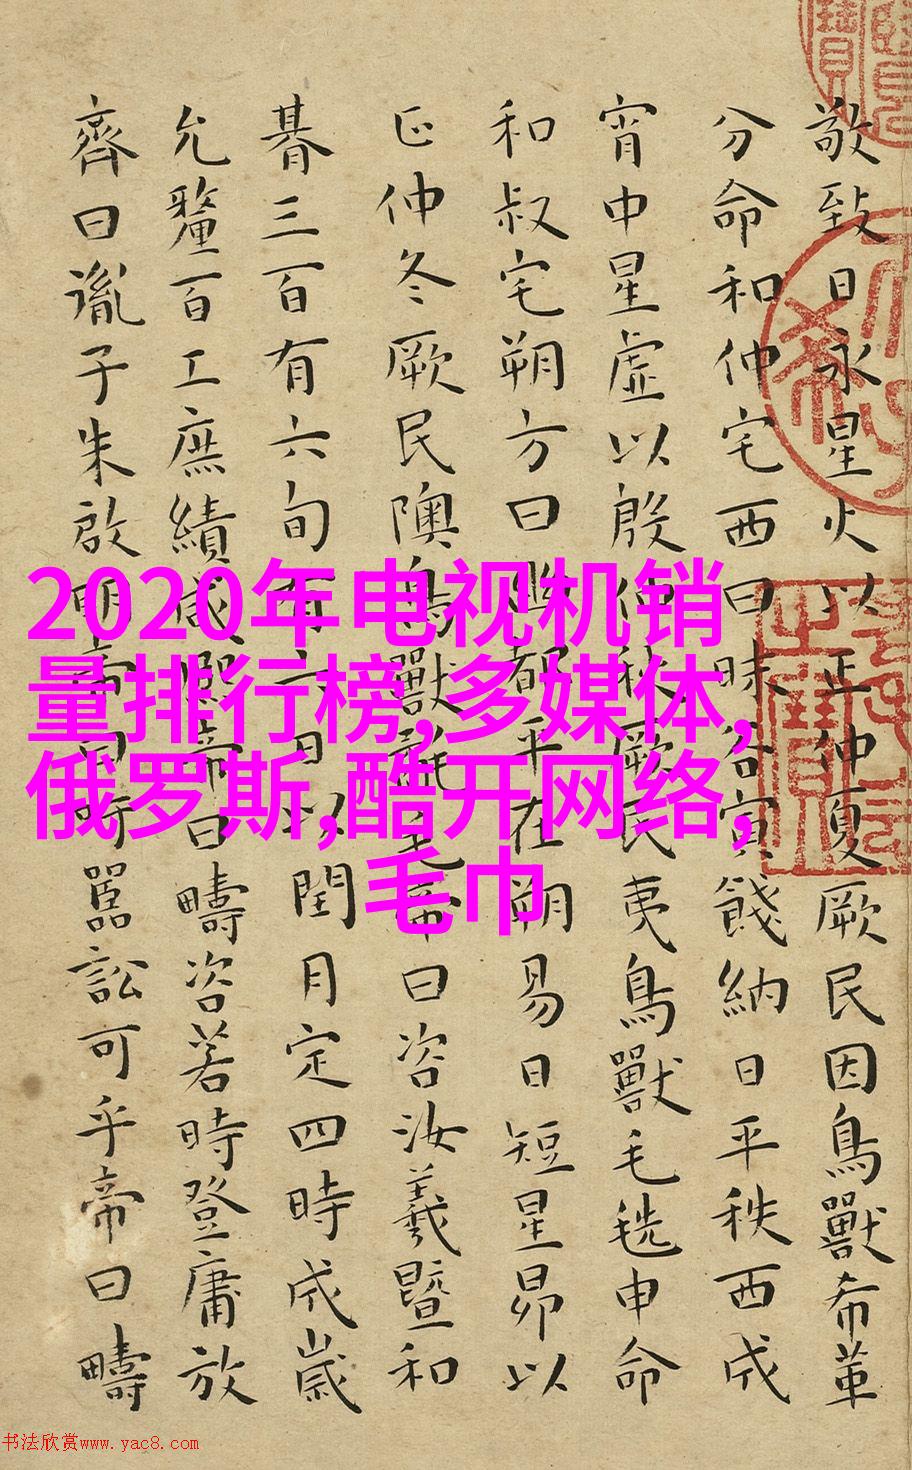 敬致日永星火以正仲夏厥民因鳥獸希革
分命和仲宅西曰昧谷寅餞納日平秩西成
宵中星虛以殷仲秋厥民夷鳥獸毛毨申命
和叔宅朔方曰幽都平在朔易日短星昴以
正仲冬厥民隩鳥獸氄毛帝曰咨汝羲暨和
朞三百有六旬有六日以閏月定四時成歲
允釐百工庶績咸熙帝曰疇咨若時登庸放
齊曰胤子朱啟明帝曰吁嚚訟可乎帝曰疇
2020年电视机销
量排行榜,多媒体,
俄罗斯,酷开网络,
毛巾
书法欣赏www.yac8.com